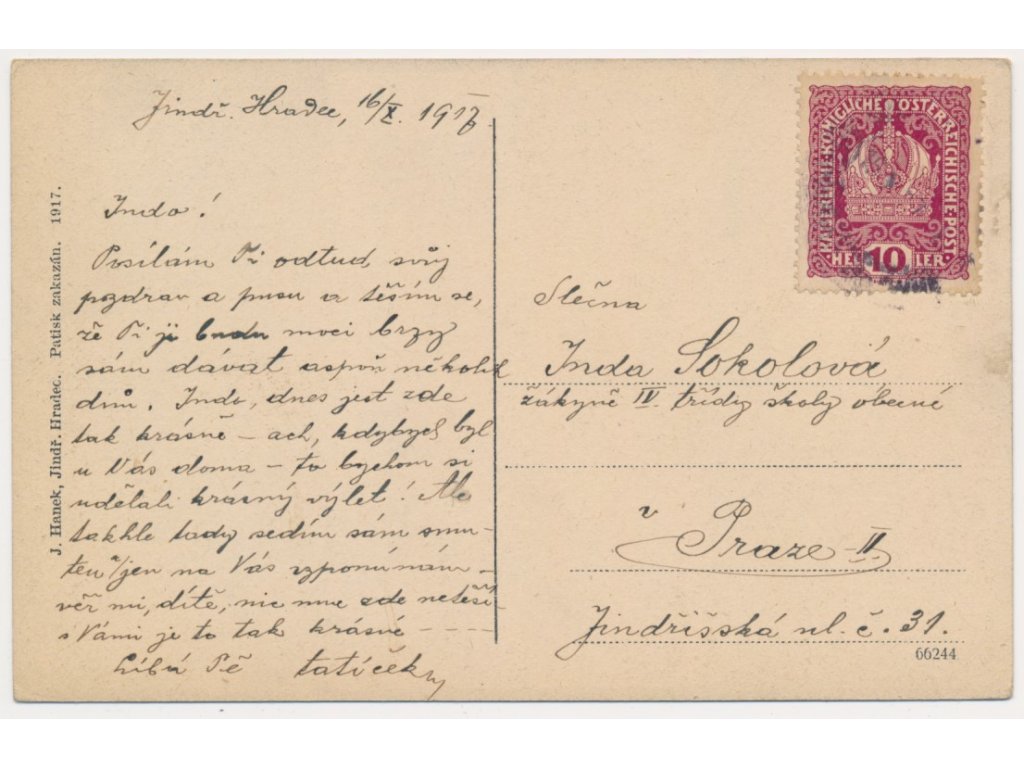 Jindř. Hradec, 16/X. 1917.
Indo!
Posílám Ti odtud svůj
pozdrav a pusu a těším se,
že Ti ji budu moci brzy
sám dávat aspoň několik
dnů. Indo, dnes jest zde
tak krásně – ach, kdybych byl
u Vás doma – to bychom si
udělali krásný výlet! Ale
takhle tady sedím sám smu-
ten a jen na Vás vzpomínám –
věř mi, dítě, nic mne zde netěší
s Vámi je to tak krásné – – – –
Líbá Tě tatíček
J. Hanek, Jindř. Hradec. Patisk zakazán. 1917.
KAISERLICHE KÖNIGLICHE ÖSTERREICHISCHE POST
10
HELLER
Slečna
Inda Sokolová
žákyně IV. třídy školy obecné
v
Praze–II
Jindřišská ul. č. 31.
66244